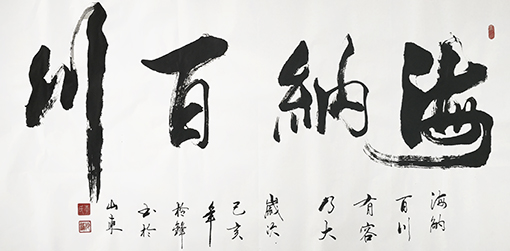 海納百川
海納
百川
有容
乃大
歲次
己亥
年
書於
山東